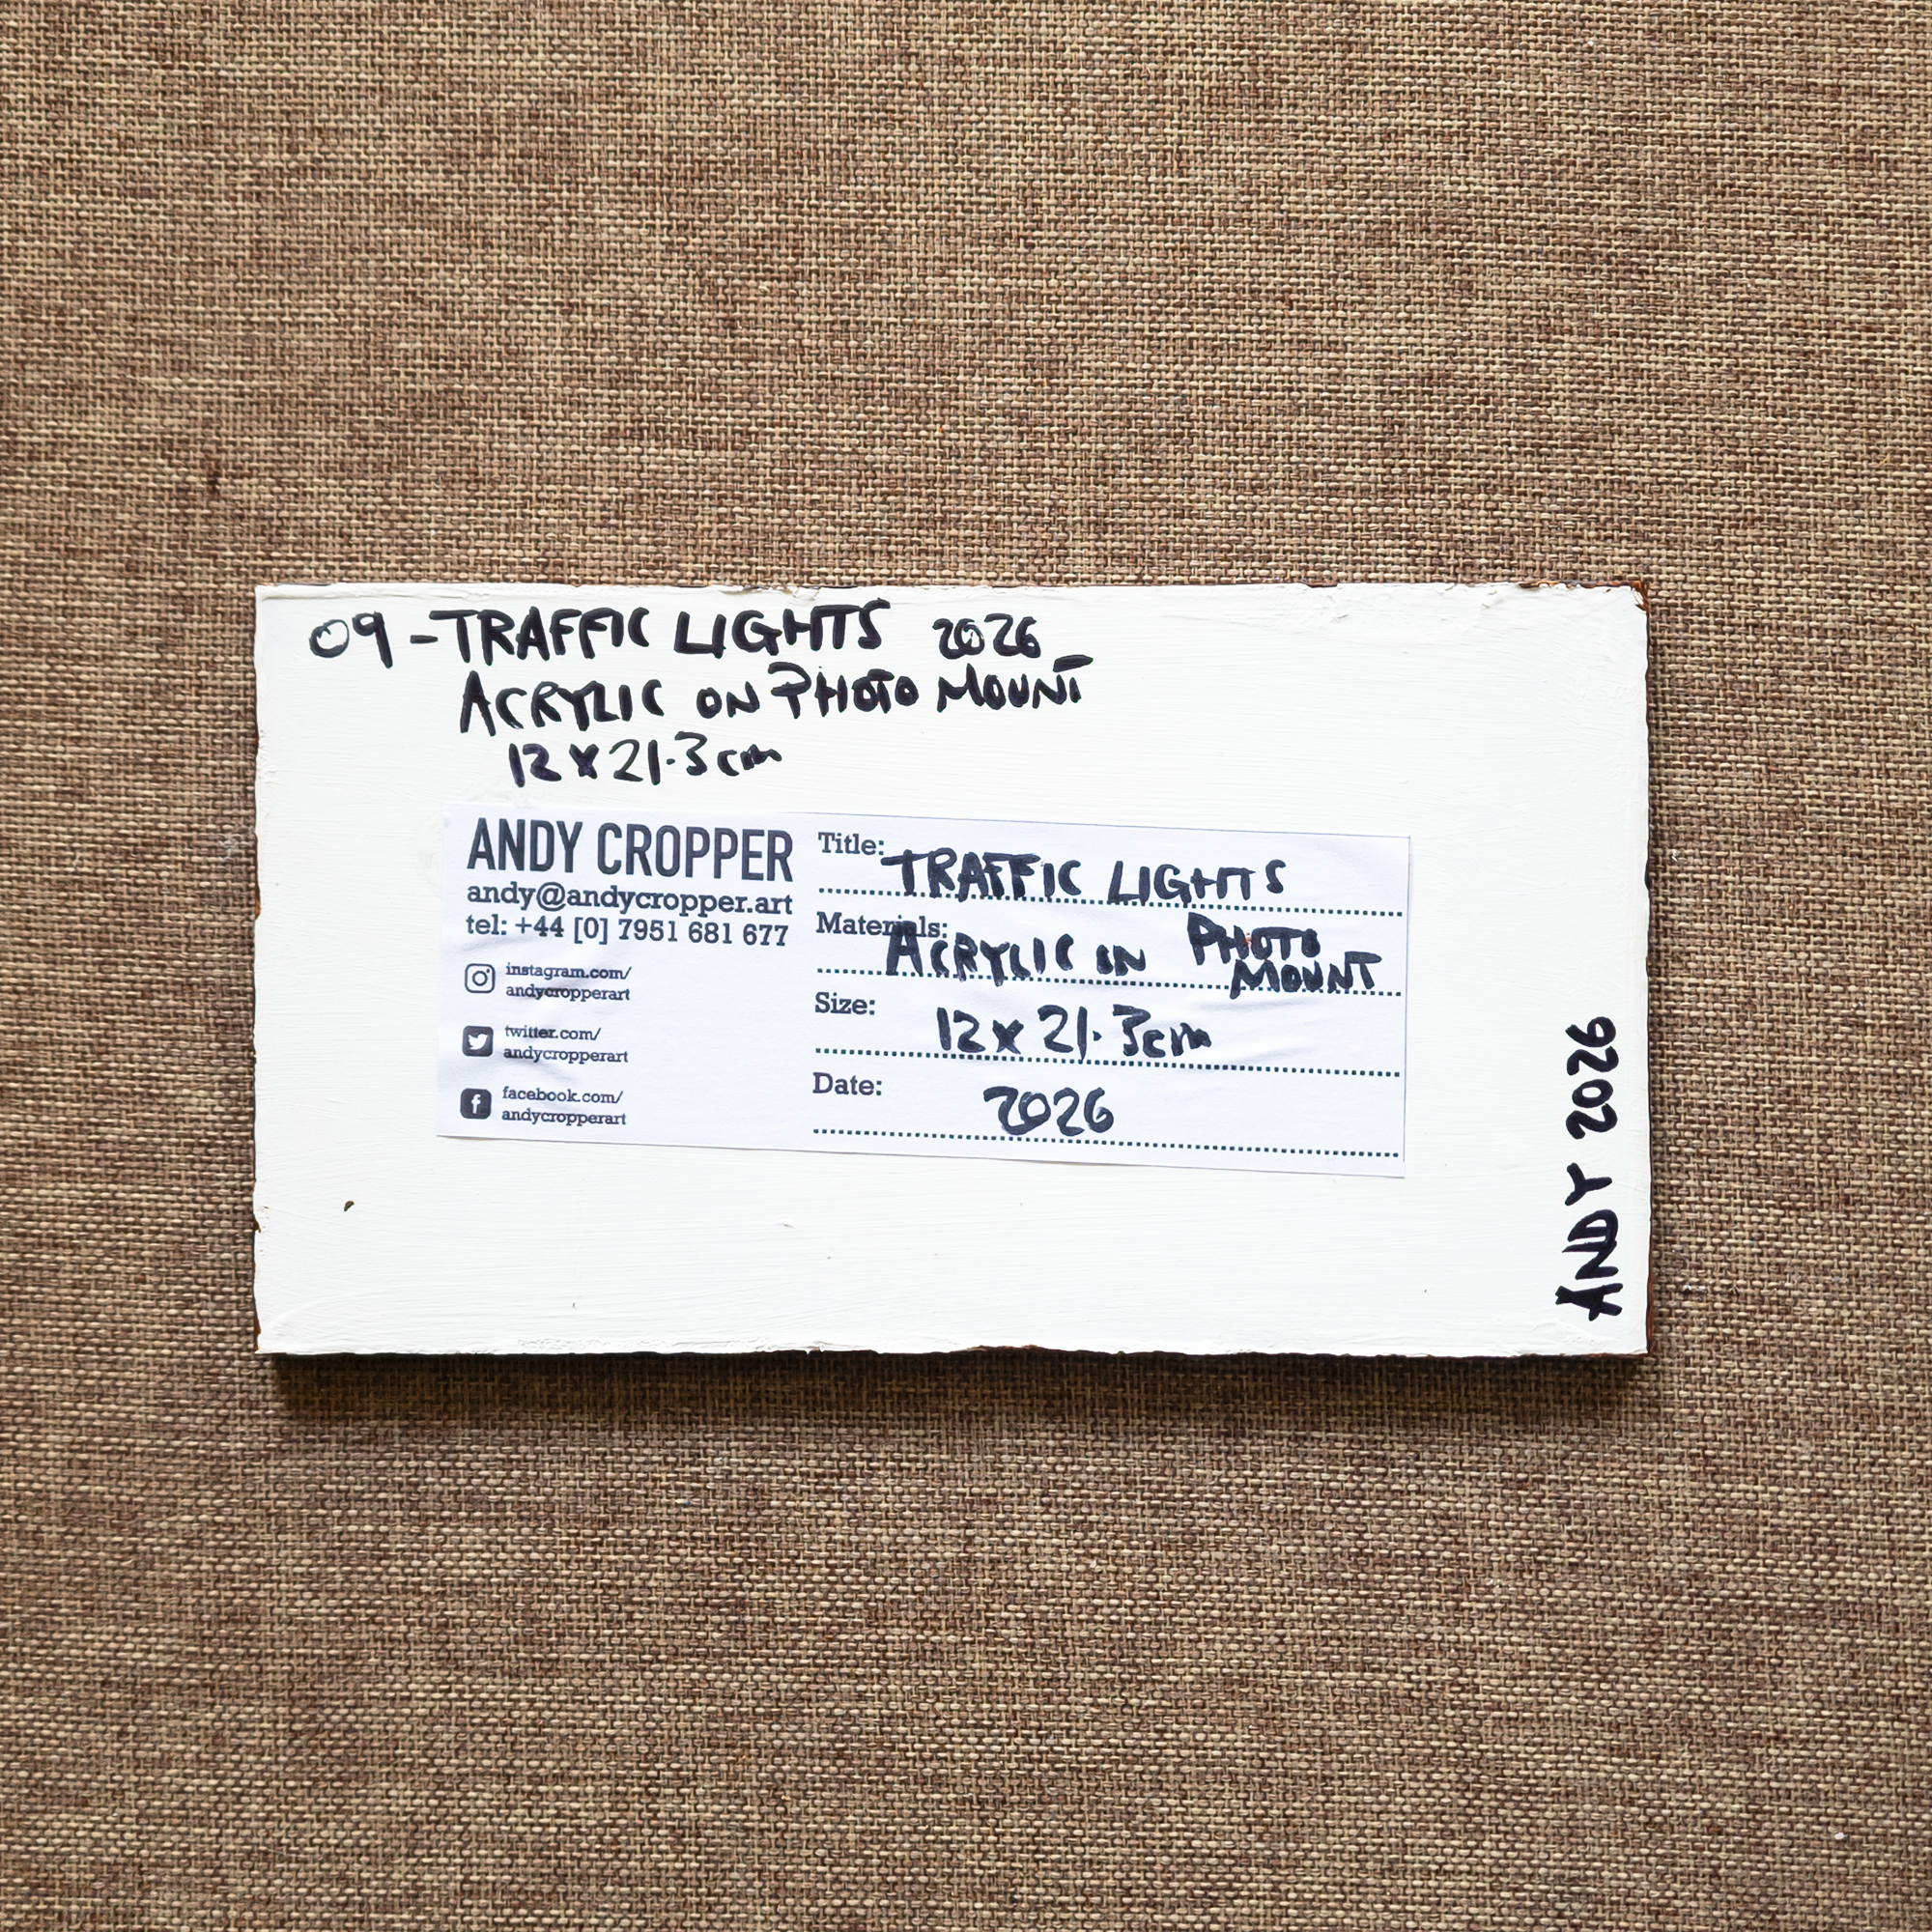 09 - TRAFFIC LIGHTS 2026
ACRYLIC ON PHOTO MOUNT
12 x 21.3 cm
ANDY CROPPER
andy@andycropper.art
tel: +44 [0] 7951 681 677
instagram.com/
andycropperart
twitter.com/
andycropperart
facebook.com/
andycropperart
Title: TRAFFIC LIGHTS
Materials: ACRYLIC ON PHOTO
MOUNT
Size: 12 x 21.3 cm
Date: 2026
ANDY 2026